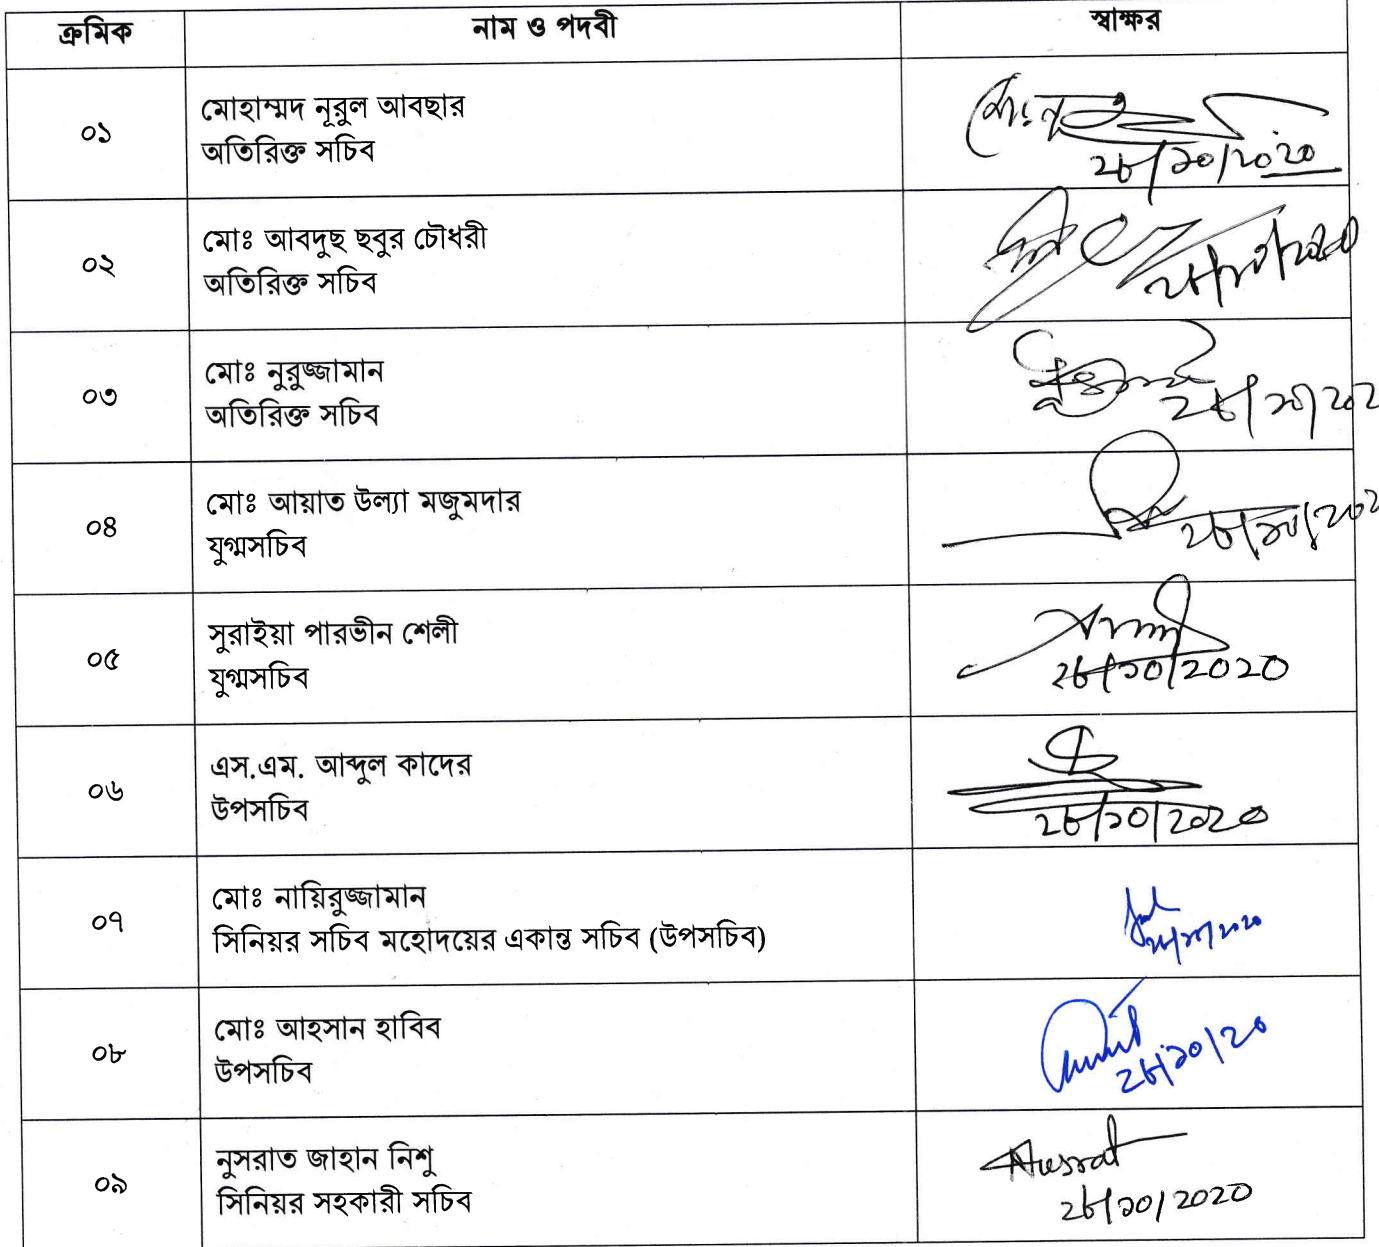 ক্রমিক নাম ও পদবী স্বাক্ষর
০১ মোহাম্মদ নূরুল আবছার
অতিরিক্ত সচিব
২৮/১০/২০২০
০২ মোঃ আবদুছ ছবুর চৌধরী
অতিরিক্ত সচিব
২৮/১০/২০২০
০৩ মোঃ নুরুজ্জামান
অতিরিক্ত সচিব
২৮/১০/২০২
০৪ মোঃ আয়াত উল্যা মজুমদার
যুগ্মসচিব
২৮/১০/২০২
০৫ সুরাইয়া পারভীন শেলী
যুগ্মসচিব
২৮/১০/২০২০
০৬ এস.এম. আব্দুল কাদের
উপসচিব
২৮/১০/২০২০
০৭ মোঃ নায়িরুজ্জামান
সিনিয়র সচিব মহোদয়ের একান্ত সচিব (উপসচিব)
০৮ মোঃ আহসান হাবিব
উপসচিব
২৮/১০/২০
০৯ নুসরাত জাহান নিশু
সিনিয়র সহকারী সচিব
Nusrat
২৮/১০/২০২০